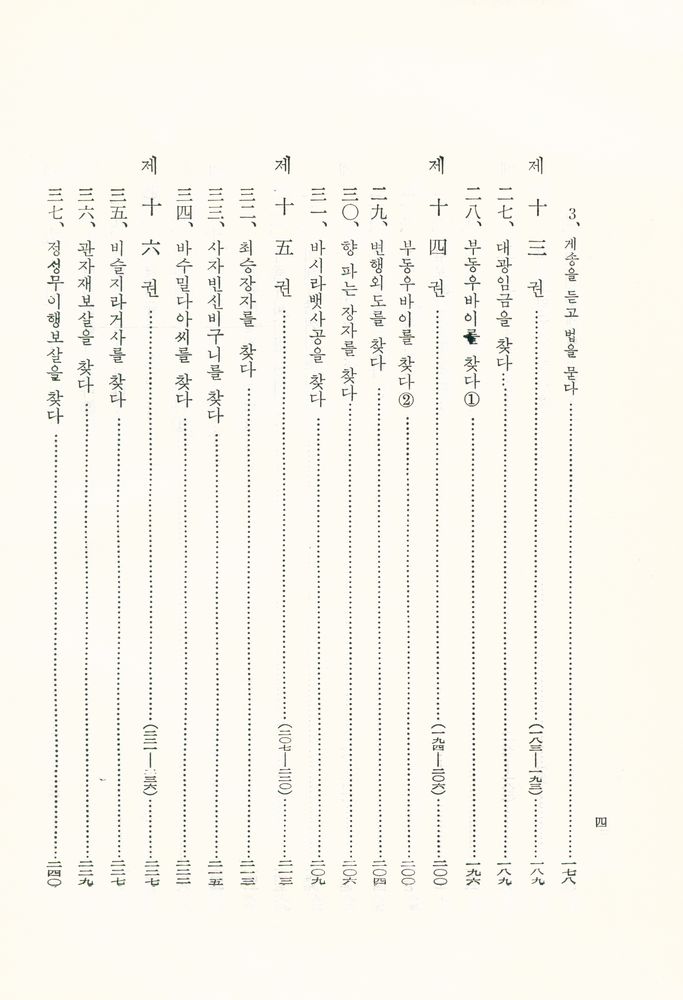 3、게송을 듣고 법을 묻다……一七八
제十三권……(一八三—一九三)……一八九
二七、대광임금을 찾다……一八九
二八、부동우바이를 찾다①……一九六
제十四권……(一九四—二〇六)……二〇〇
부동우바이를 찾다②……二〇〇
二九、변행외도를 찾다……二〇四
三〇、향 파는 장자를 찾다……二〇六
三一、바시라뱃사공을 찾다……二〇九
제十五권……(二〇七—二二〇)……二一三
三二、최승장자를 찾다……二一三
三三、사자빈신비구니를 찾다……二一五
三四、바수밀다아씨를 찾다……二二二
제十六권……(二二一—二三六)……二二七
三五、비슬지라거사를 찾다……二二七
三六、관자재보살을 찾다……二二九
三七、정성무이행보살을 찾다……二四〇
四